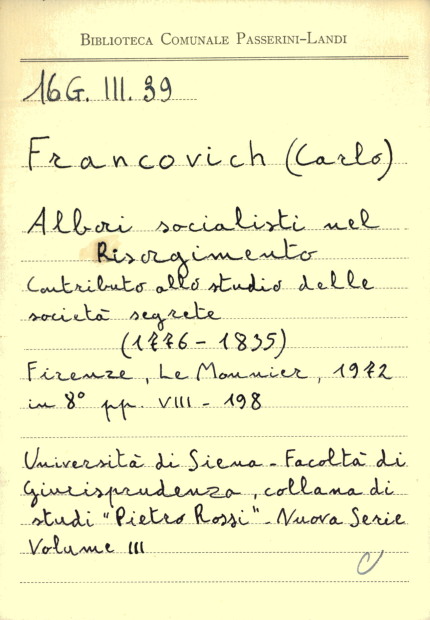 BIBLIOTECA COMUNALE PASSERINI-LANDI
16G. III. 39
Francovich (Carlo)
Albori socialisti nel
Risorgimento
Contributo allo studio delle
società segrete
(1776-1835)
Firenze, Le Monnier, 1972
in 8° pp. VIII - 198
Università di Siena - Facoltà di
Giurisprudenza, collana di
studi "Pietro Rossi" - Nuova Serie
Volume III
C